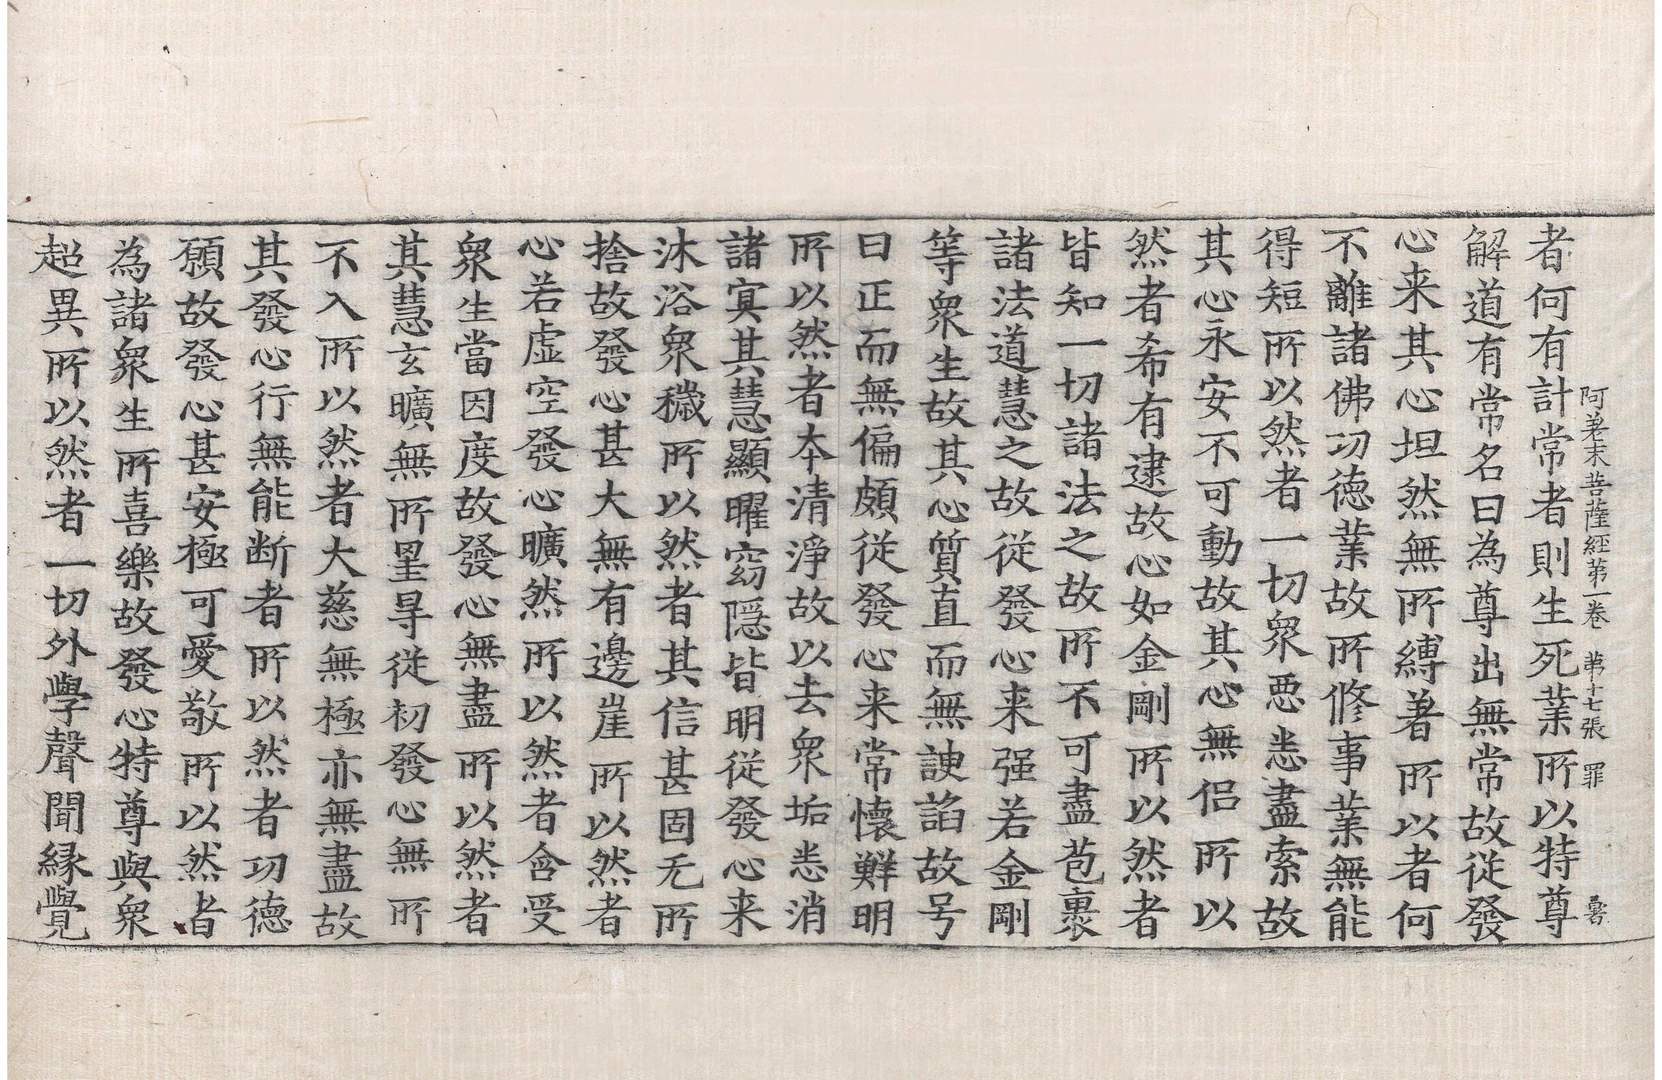 阿差末菩薩經第一卷　第十七張　罪
者何有計常者則生死業所以特尊
解道有常名曰為尊出無常故從發
心来其心坦然無所縛著所以者何
不離諸佛功德業故所修事業無能
得短所以然者一切眾惡悉盡索故
其心永安不可動故其心無侶所以
然者希有逮故心如金剛所以然者
皆知一切諸法之故所不可盡苞裹
諸法道慧之故從發心来强若金剛
等眾生故其心質直而無諛諂故号
曰正而無偏頗從發心来常懷鮮明
所以然者本清淨故以去眾垢悉消
諸冥其慧顯曜窈隱皆明從發心来
沐浴眾穢所以然者其信甚固无所
捨故發心甚大無有邊崖所以然者
心若虛空發心曠然所以然者含受
眾生當因度故發心無盡所以然者
其慧玄曠無所罣㝵從初發心無所
不入所以然者大慈無極亦無盡故
其發心行無能断者所以然者功德
願故發心甚安極可愛敬所以然者
為諸眾生所喜樂故發心特尊與眾
超異所以然者一切外學聲聞緣覺